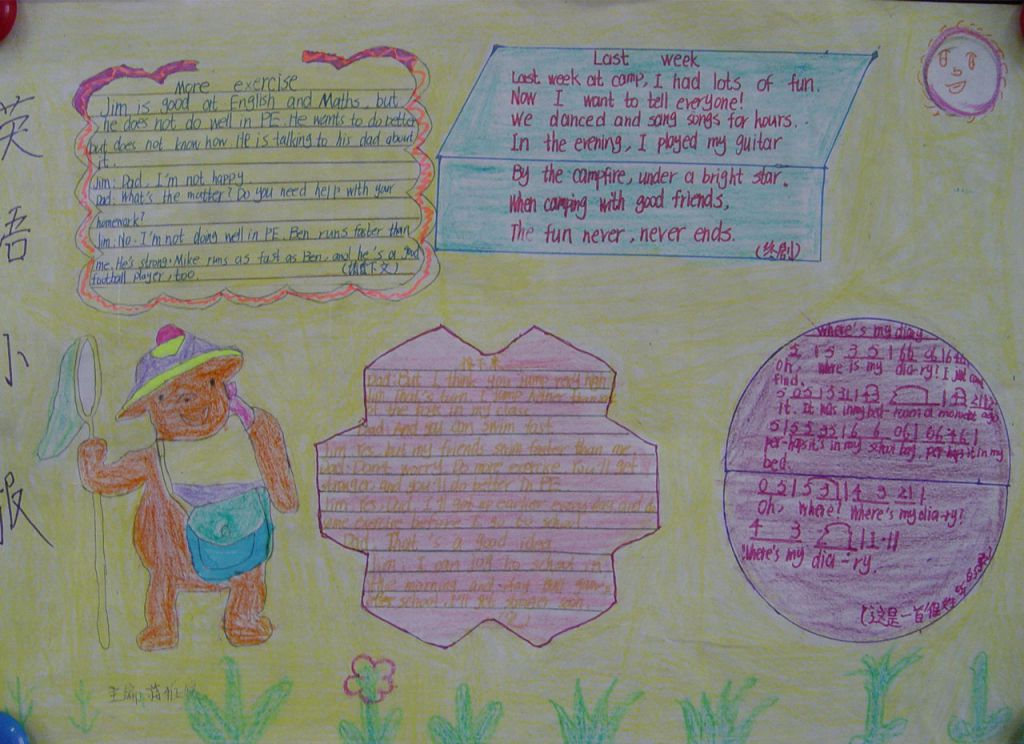 英
语
小
报
More exercise
Jim is good at English and Maths, but
he does not do well in PE. He wants to do better
but does not know how. He is talking to his dad about
it.
Jim: Dad, I'm not happy
Dad: What's the matter? Do you need help with your
homework?
Jim: No. I'm not doing well in PE. Ben runs faster than
me. He's strong. Mike runs as fast as Ben, and he's a good
football player, too.
Last week
Last week at camp, I had lots of fun.
Now I want to tell everyone!
We danced and sang songs for hours.
In the evening, I played my guitar
By the campfire, under a bright star.
When camping with good friends,
The fun never, never ends.
接下来
Dad: But I think you jump
in the boys in my class
Dad: And you can swim fast
Jim: Yes, but my friends swim faster than me.
Dad: Don't worry. Do more exercise. You'll get
stronger and you'll do better in PE.
Jim: Yes, Dad. I'll get up earlier every day and do
some exercise before I go to school
Dad: That's a good idea
Jim: I can jog to school in
the morning and play
after school. I'll get stronger soon.
where's my diary
Oh, where is my dia-ry! I just can't
find
it. It was in my bed-room a moment ago
per-haps it's in my school bag, per-haps it's in my
bed.
0 5 1 5 3 1 4 3 2 1 1
Oh, where? where's my dia-ry?
Where's my dia-ry.
(这是一首
主编:蒋